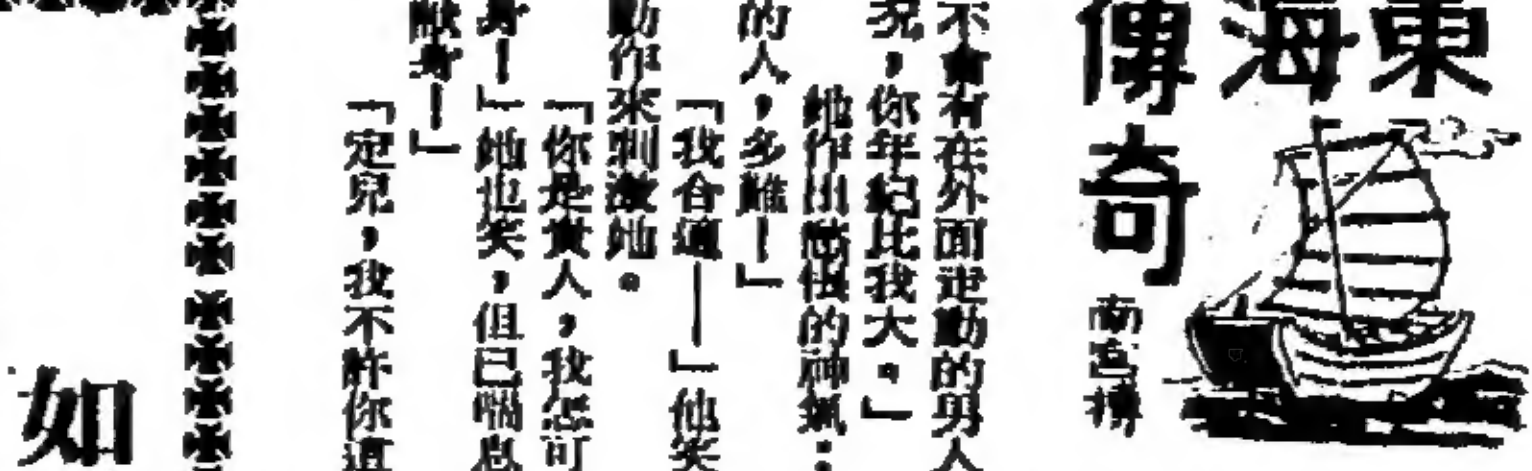 東海傳奇
南宮搏
不會有在外面走動的男人
況，你年紀比我大。」
她作出的神氣：
的人，多難—」
「我合適——」他笑
動作來刺激她。
「你是貴人，我怎可
身—」她也笑，但已喘息
獻身—」
「定兒，我不許你這
如